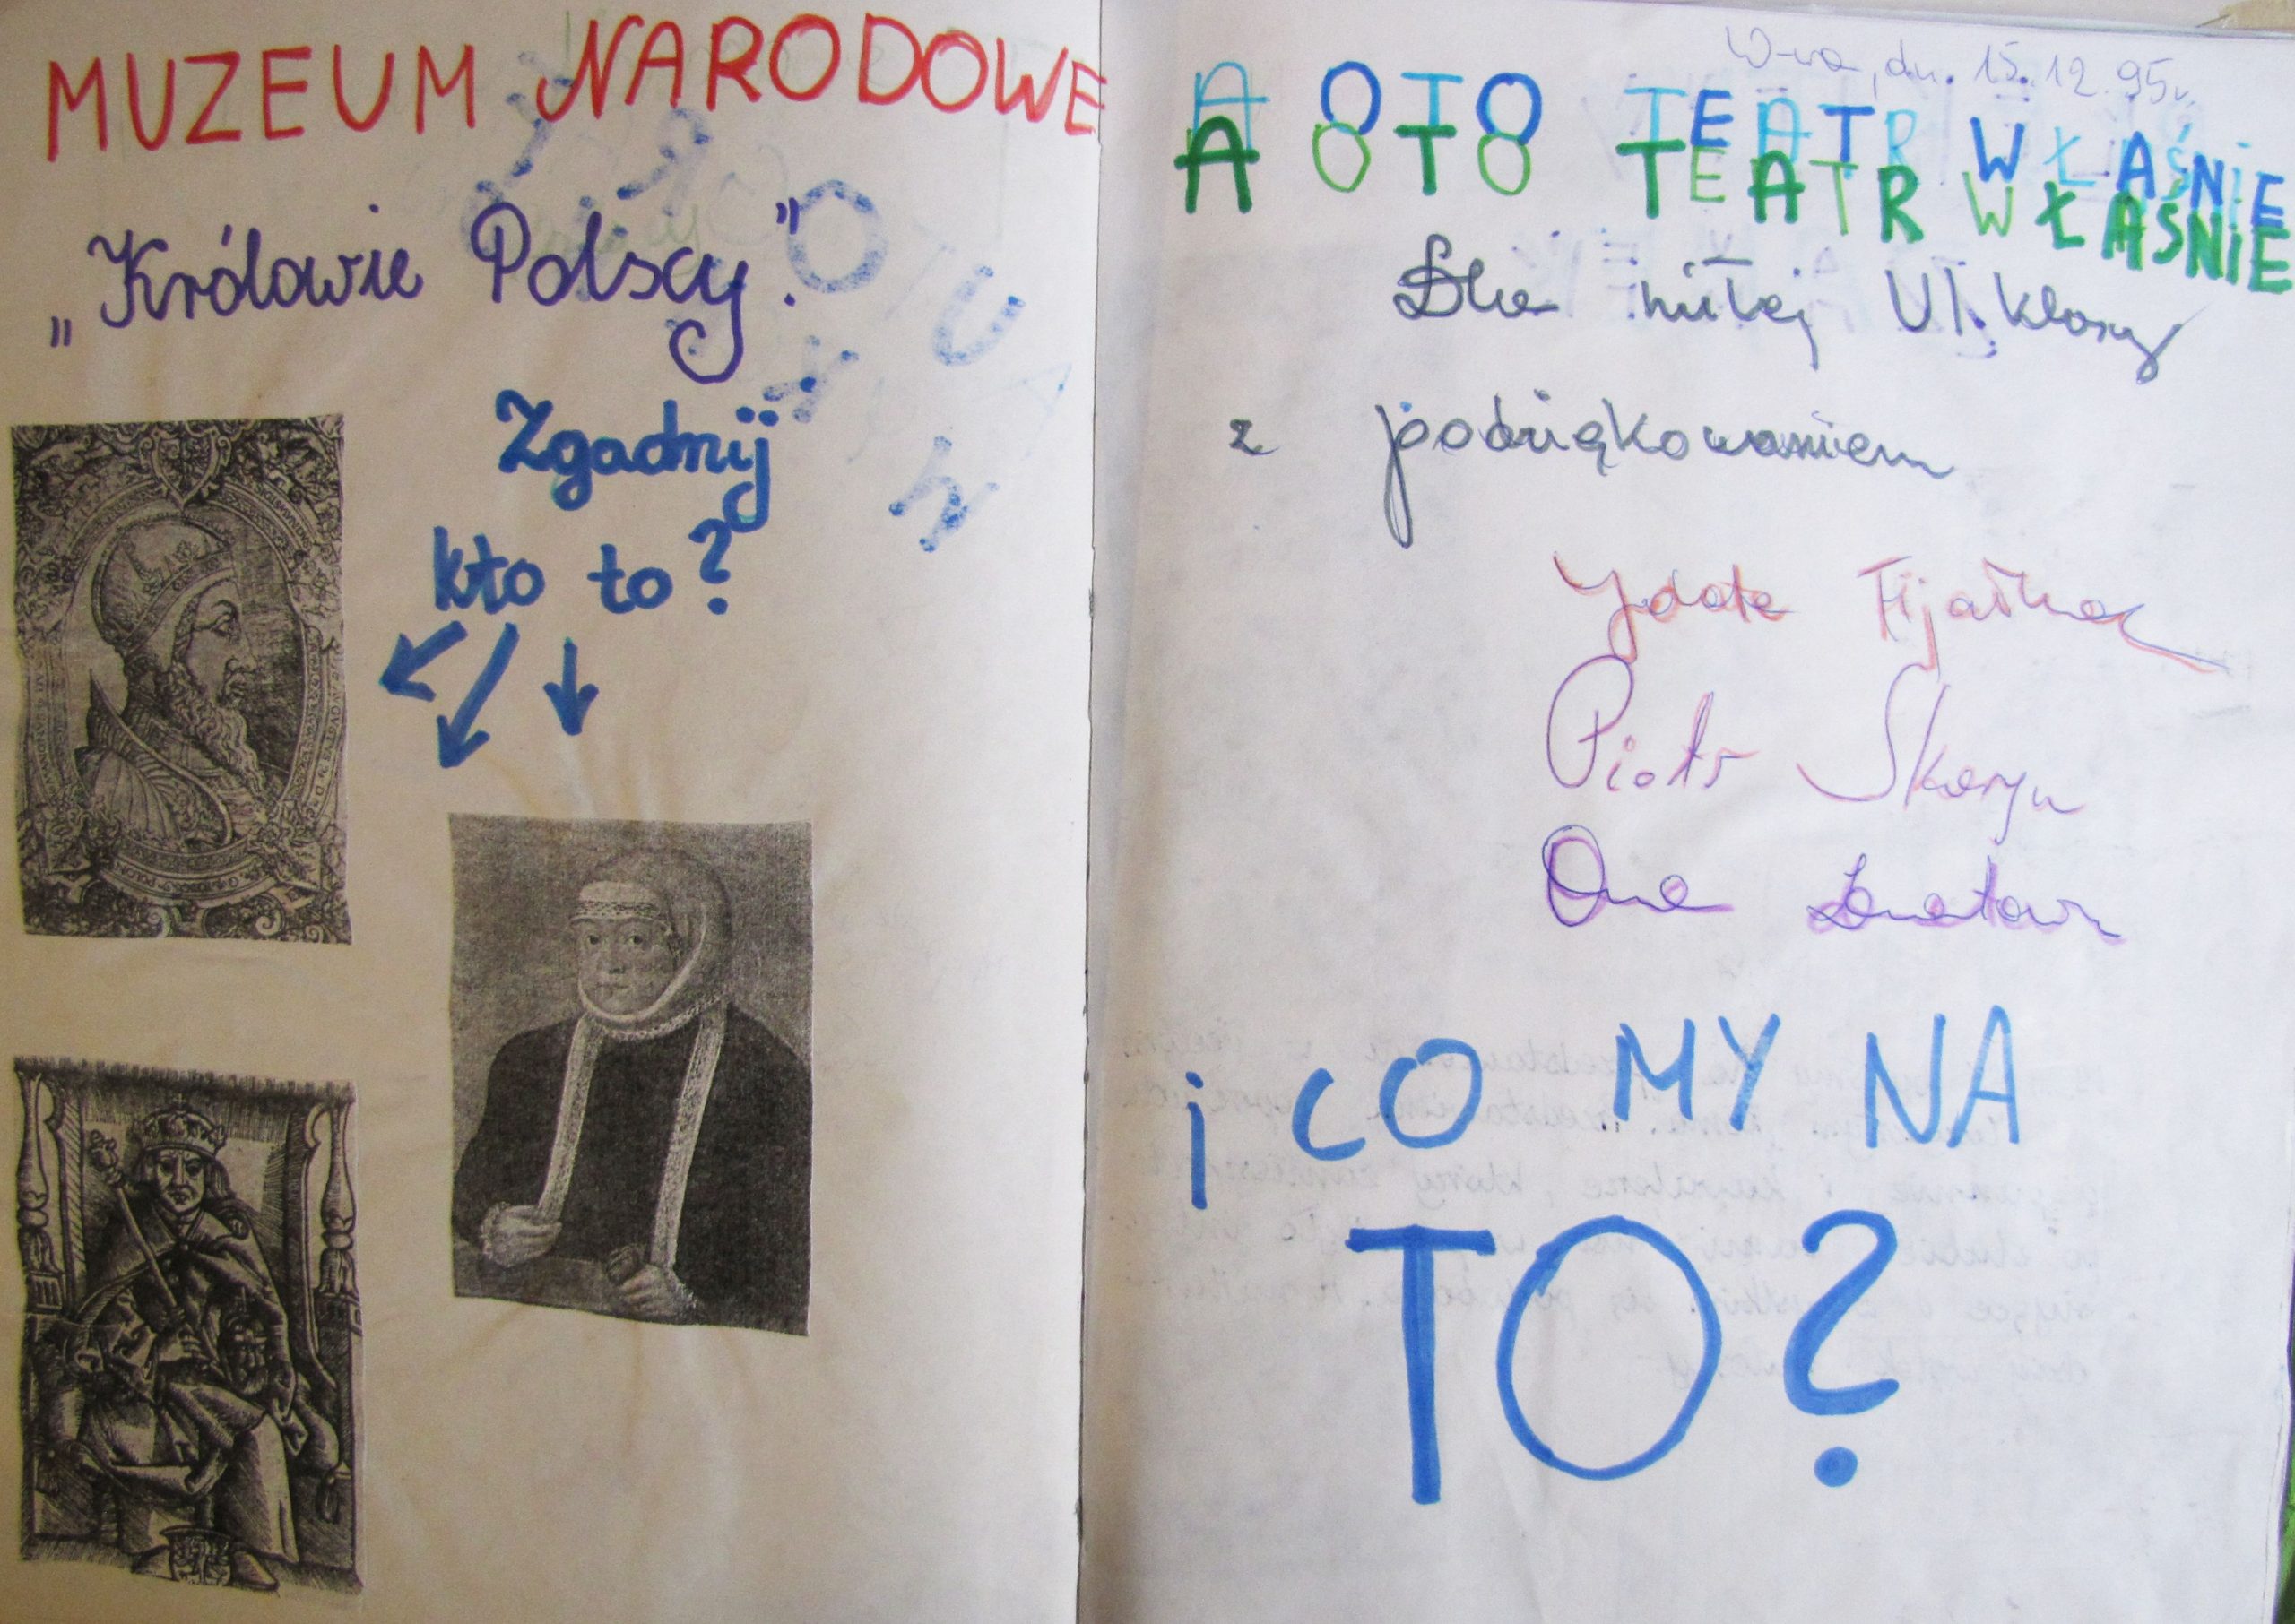 MUZEUM NARODOWE
„Królowie Polscy".
Zgadnij
kto to?
W-wa, dn. 15.12.95r.
A OTO TEATR WŁAŚNIE
A OTO TEATR WŁAŚNIE
Dla miłej VI klasy
z podziękowaniem
Piotr
i CO MY NA
TO?